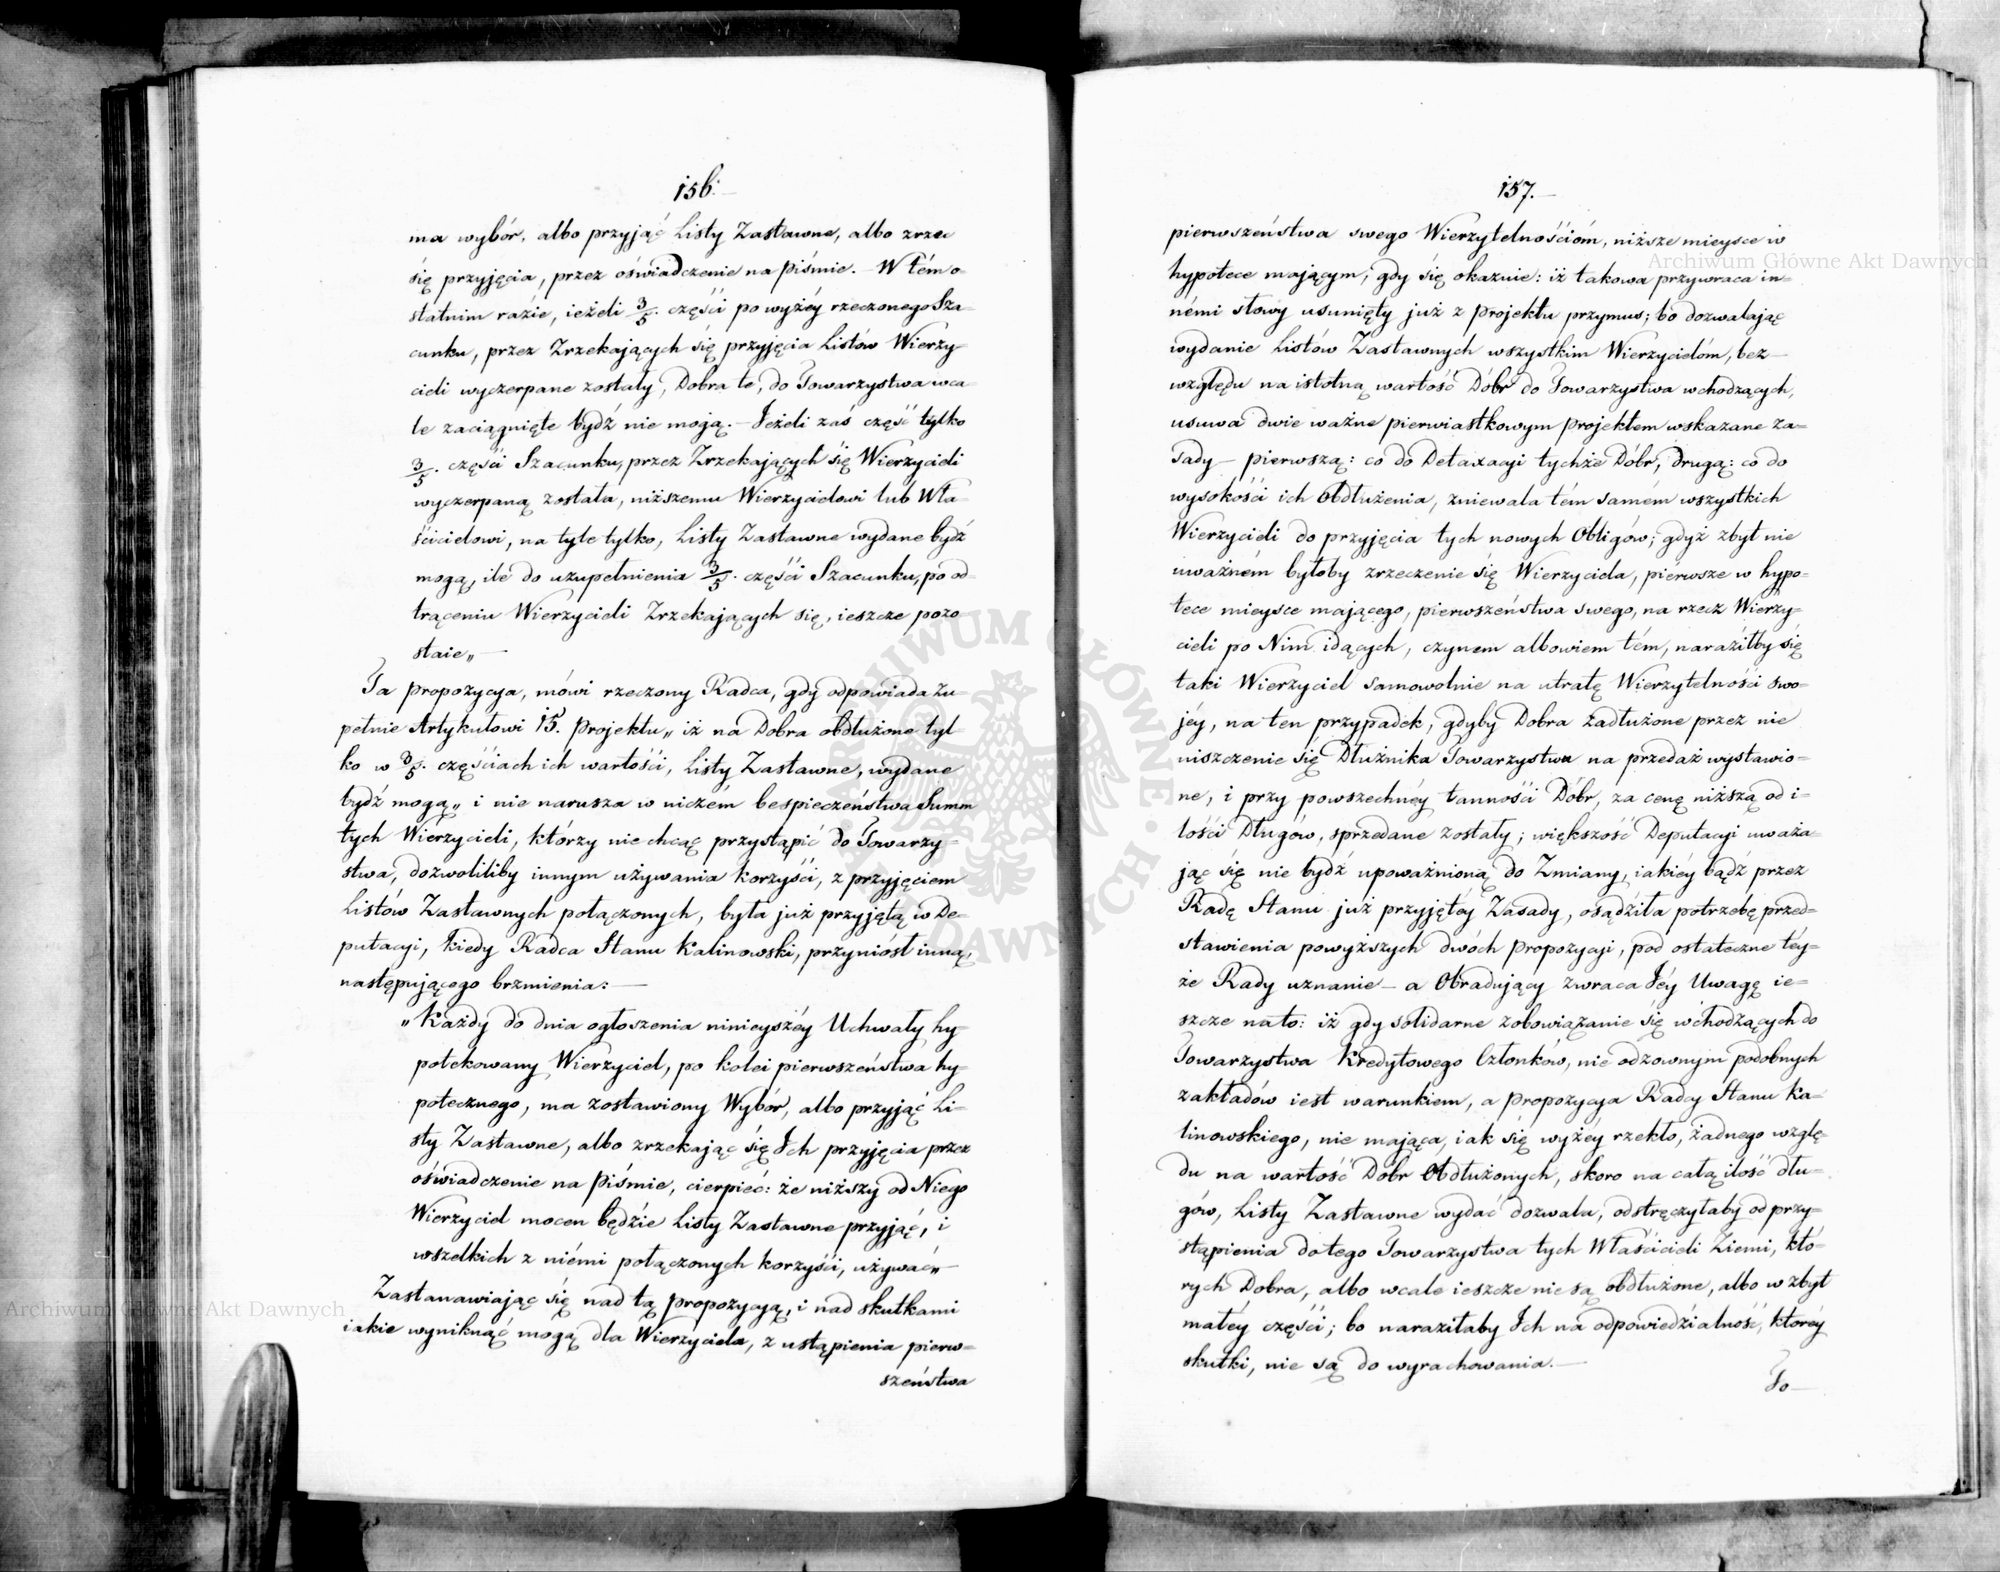 156.
ma wybór, albo przyjąć Listy Zastawne, albo zrzec
się przyjęcia, przez oświadczenie na piśmie. W tém o-
statnim razie, ieżeli 3/5. części po wyżéy rzeczonego Sza-
cunku, przez Zrzekających się przyjęcia Listów Wierzy-
cieli wyczerpane zostały, Dobra te, do Towarzystwa wca-
le zaciągnięte bydź nie mogą. – Jeżeli zaś część tylko
3/5. części Szacunku, przez Zrzekających się Wierzycieli
wyczerpaną została, niższemu Wierzycielowi lub Wła-
ścicielowi, na tyle tylko, Listy Zastawne wydane bydź
mogą, ile do uzupełnienia 3/5. części Szacunku, po od-
trąceniu Wierzycieli Zrzekających się, ieszcze pozo-
staie„ –
Ta propozycya, mówi rzeczony Radca, gdy odpowiada zu-
pełnie Artykułowi 15. Projektu „ iż na Dobra obdłużone tyl-
ko w 3/5. częściach ich wartości, Listy Zastawne, wydane
bydź mogą„ i nie narusza w niczém bespieczeństwa Summ
tych Wierzycieli, którzy nie chcąc przystąpić do Towarzy-
stwa, dozwoliliby innym używania korzyści, z przyjęciem
Listów Zastawnych połączonych, była już przyjętą w De-
putacyi, kiedy Radca Stanu Kalinowski, przyniósł inną,
następującego brzmienia: –
„Każdy do dnia ogłoszenia ninieyszéy Uchwały hy-
potekowany Wierzyciel, po kolei pierwszeństwa hy-
potecznego, ma zostawiony Wybór, albo przyjąć Li-
sty Zastawne, albo zrzekając się Ich przyjęcia przez
oświadczenie na piśmie, cierpieć: że niższy od Niego
Wierzyciel mocen będzie Listy Zastawne przyjąć, i
wszelkich z niémi połączonych korzyści, używać„ –
Zastanawiając się nad tą propozycyą, i nad skutkami
iakie wyniknąć mogą dla Wierzyciela, z ustąpienia pierw-
szeństwa
157.
pierwszeństwa swego Wierzytelnościóm, niższe mieysce w
hypotece mającym; gdy się okazuie: iż takowa przywraca in-
némi słowy usunięty już z projektu przymus; bo dozwalając
wydanie Listów Zastawnych wszystkim Wierzycielóm, bez-
względu na istotną wartość Dóbr do Towarzystwa wchodzących,
usuwa dwie ważne pierwiastkowym projektem wskazane za-
sady – pierwszą: co do Detaxacyi tychże Dóbr, drugą: co do
wysokości ich obdłużenia, zniewala tém samém wszystkich
Wierzycieli do przyjęcia tych nowych Obligów; gdyż zbyt nie
uważném byłoby zrzeczenie się Wierzyciela, pierwsze w hypo-
tece mieysce mającego, pierwszeństwa swego, na rzecz Wierzy-
cieli po Nim idących, czynem albowiem tém, naraziłby się
taki Wierzyciel samowolnie na utratę Wierzytelności swo-
jéy, na ten przypadek, gdyby Dobra zadłużone przez nie
uiszczenie się Dłużnika Towarzystwa na przedaż wystawio-
ne, i przy powszechnéy tanności Dóbr, za cenę niższą od i-
lości Długów, sprzedane zostały; większość Deputacyi uważa-
jąc się nie bydź upoważnioną do Zmiany, iakiéy bądź przez
Radę Stanu już przyjętéy Zasady, osądziła potrzebę przed-
stawienia powyższych dwóch propozycji, pod ostateczne téy-
że Rady uznanie – a Obradujący zwraca Jéy Uwagę ie-
szcze na to: iż gdy solidarne zobowiązanie się wchodzących do
Towarzystwa Kredytowego Członków, nie odzownym podobnych
zakładów iest warunkiem, a propozycya Radcy Stanu Ka-
linowskiego, nie mająca, iak się wyżéy rzekło, żadnego wzglę-
du na wartość Dóbr Obdłużonych, skoro na całą ilość dłu-
gów, Listy Zastawne wydać dozwala, odstręczyłaby od przy-
stąpienia do tego Towarzystwa tych Właścicieli Ziemi, któ-
rych Dobra, albo wcale ieszcze nie są obdłużone, albo w zbyt
małéy części; bo naraziłaby Ich na odpowiedzialność, któréy
skutki, nie są do wyrachowania. –
To –
Archiwum Główne Akt Dawnych
Archiwum Główne Akt Dawnych
ARCHIWUM GŁÓWNE AKT DAWNYCH